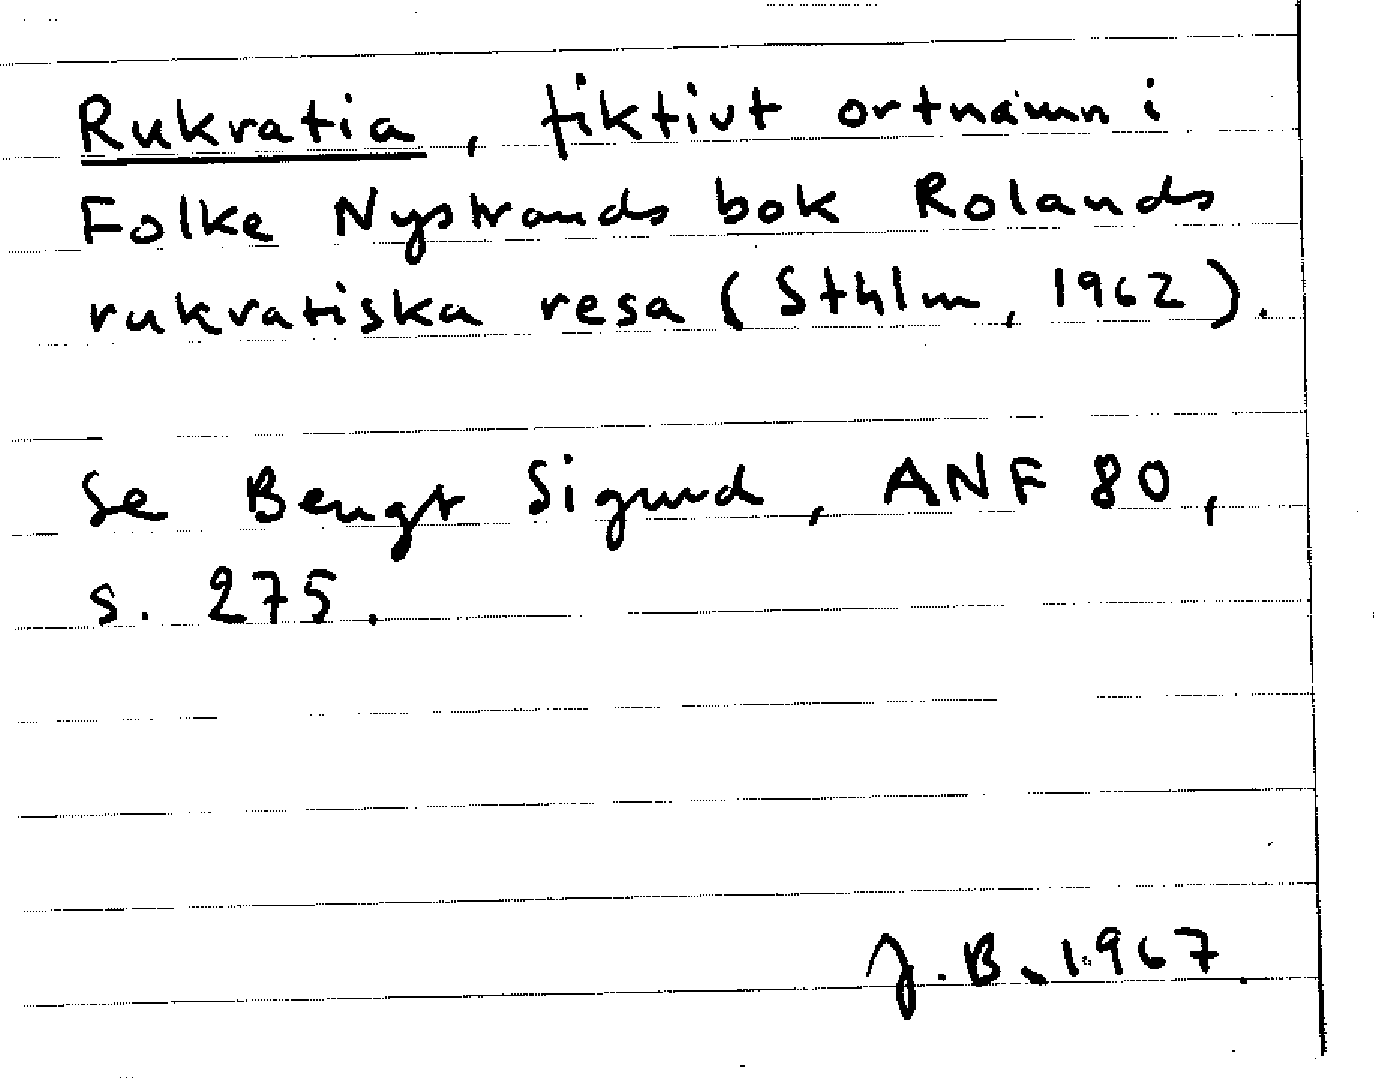 Rukratia, fiktivt ortnamn i
Folke Nystrands bok Rolands
rukratiska resa (Sthlm, 1962).
Se Bengt Sigurd, ANF 80,
s. 275.
J.B. 1967.